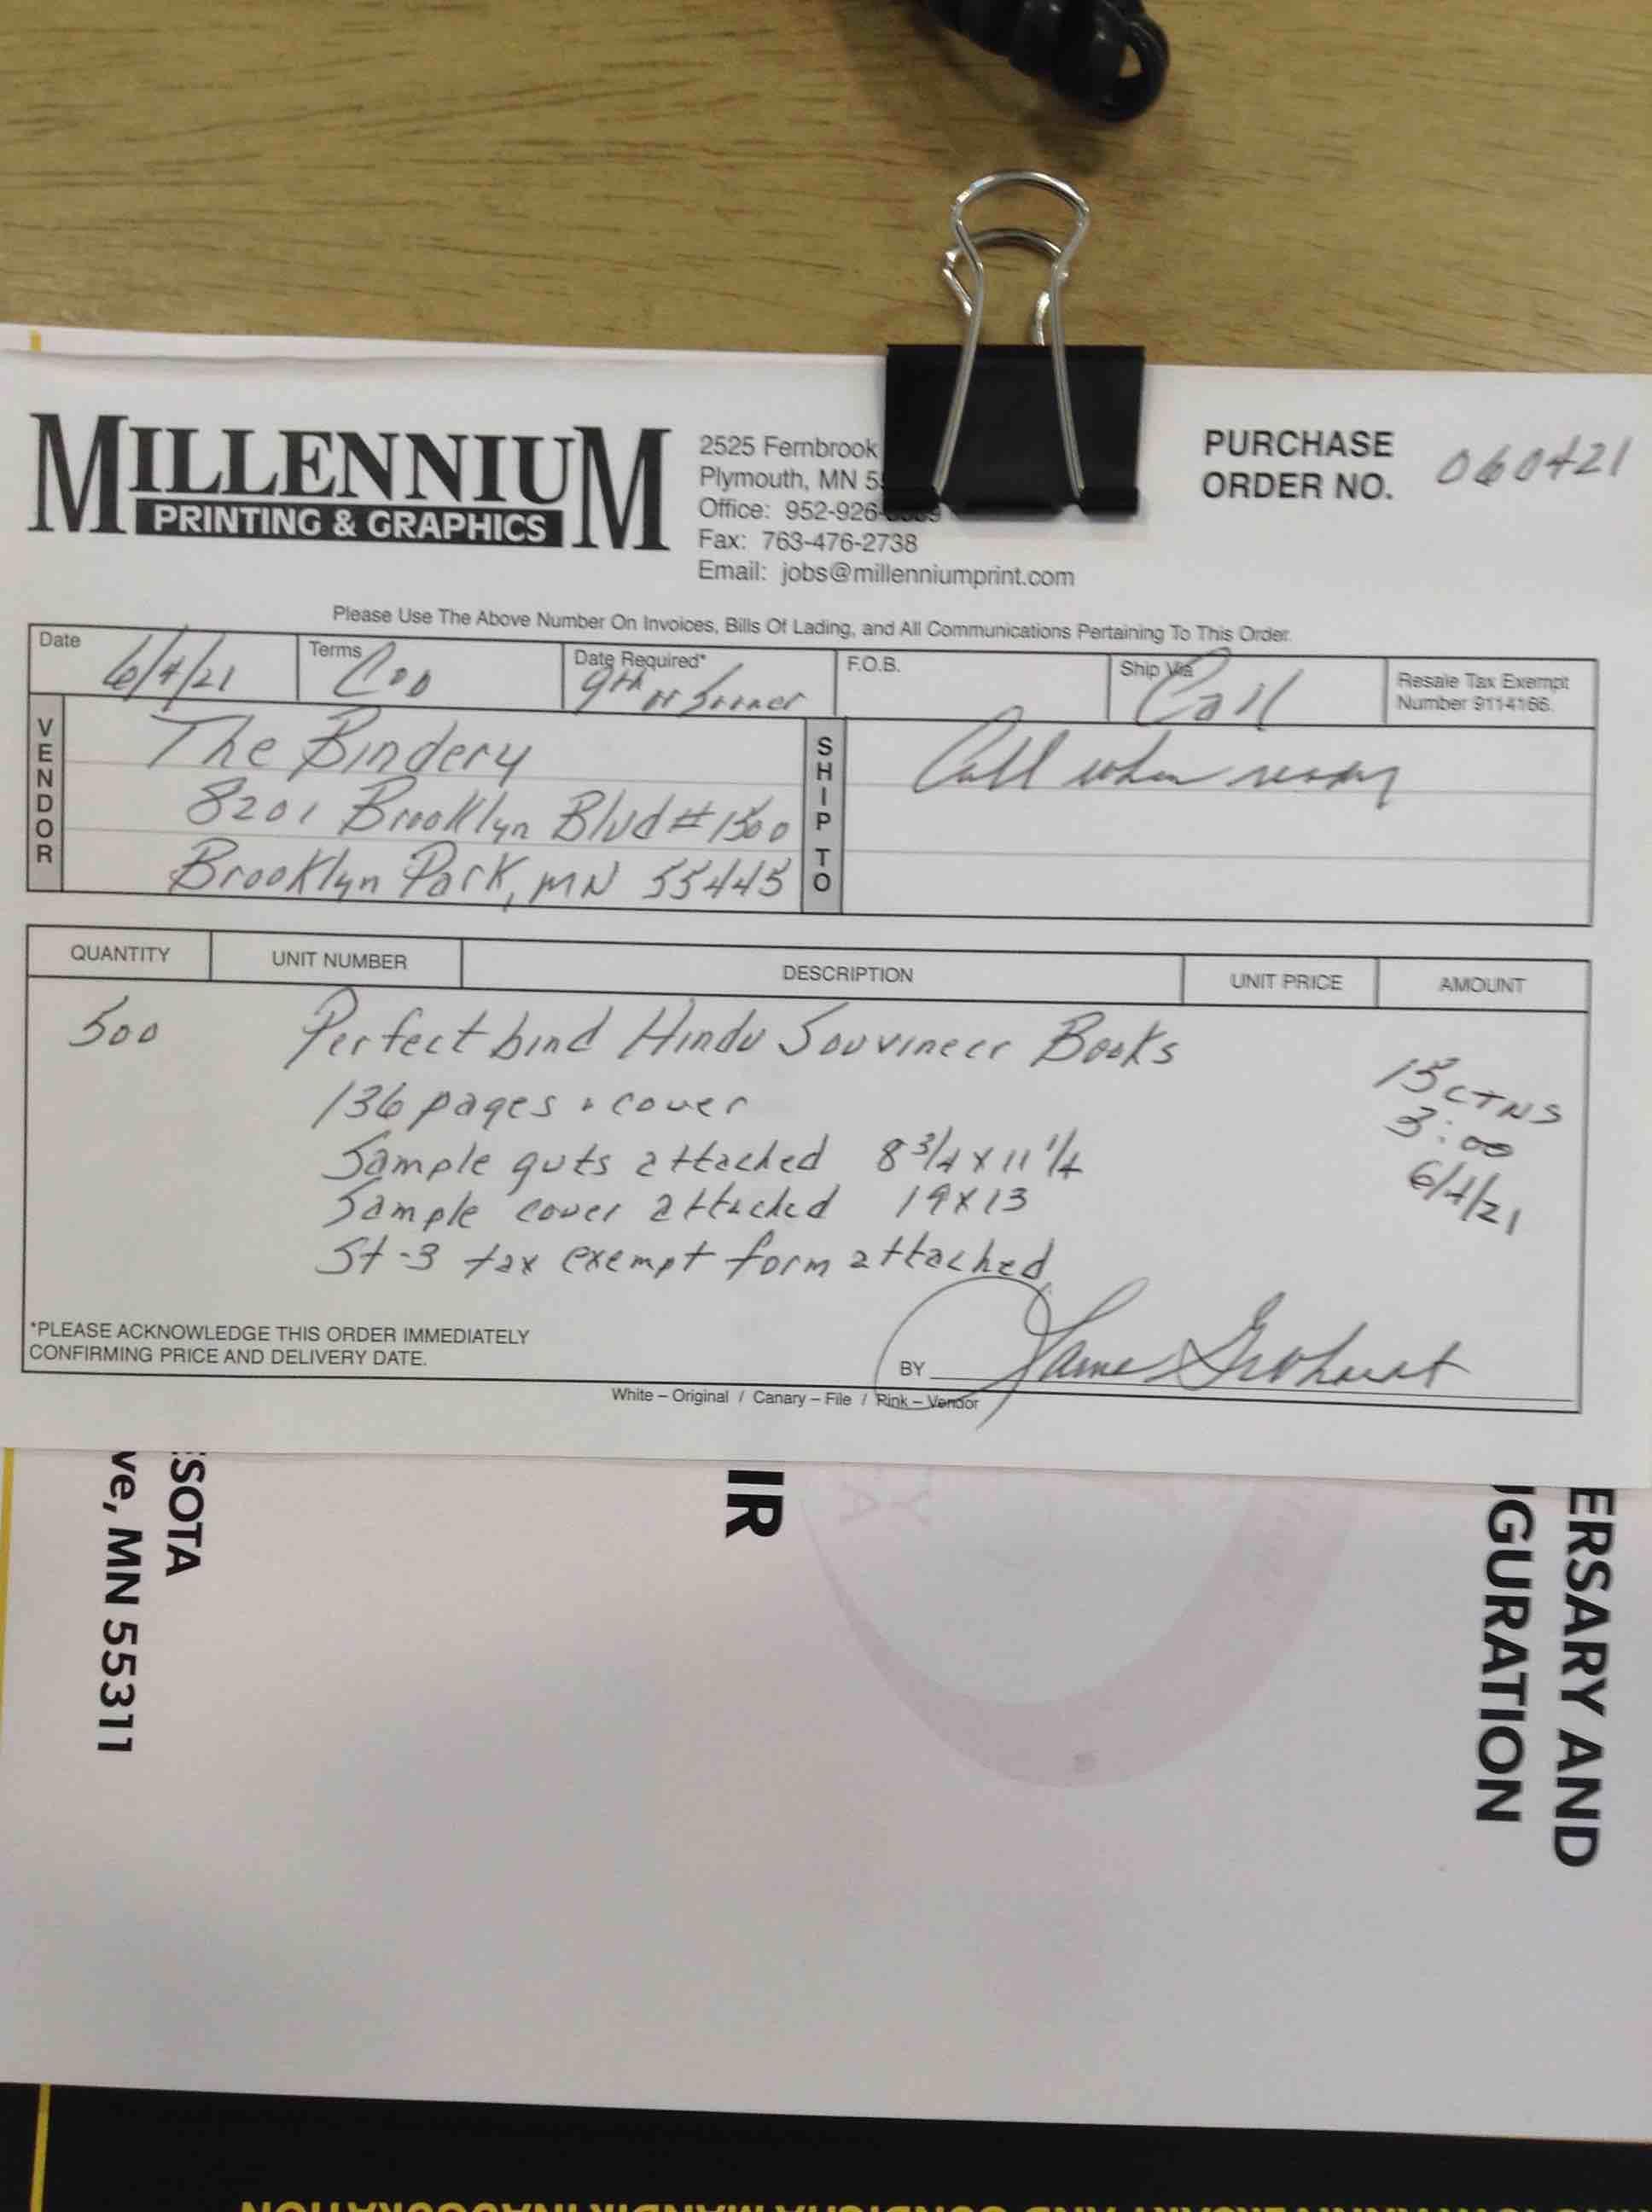 MILLENNIUM
PRINTING & GRAPHICS
2525 Fernbrook
Plymouth, MN 5
Office: 952-926-
Fax: 763-476-2738
Email: jobs@millenniumprint.com
PURCHASE
ORDER NO. 060421
Please Use The Above Number On Invoices, Bills Of Lading, and All Communications Pertaining To This Order.
Date 6/4/21 Terms COD Date Required* 9th or sooner F.O.B. Ship Via Call Resale Tax Exempt
Number 9114166.
VENDOR
The Bindery
8201 Brooklyn Blvd #1500
Brooklyn Park, MN 55445
SHIP TO
Call when ready
QUANTITY UNIT NUMBER DESCRIPTION UNIT PRICE AMOUNT
500 Perfect bind Hindu Souvineer Books
136 pages + cover
Sample guts attached 8 3/4 x 11 1/4
Sample cover attached 19x13
St-3 tax exempt form attached
15 CTNS
3:00
6/4/21
*PLEASE ACKNOWLEDGE THIS ORDER IMMEDIATELY
CONFIRMING PRICE AND DELIVERY DATE.
BY
White – Original / Canary – File / Pink – Vendor
ERSARY AND
IGURATION
IR
SOTA
ve, MN 55311